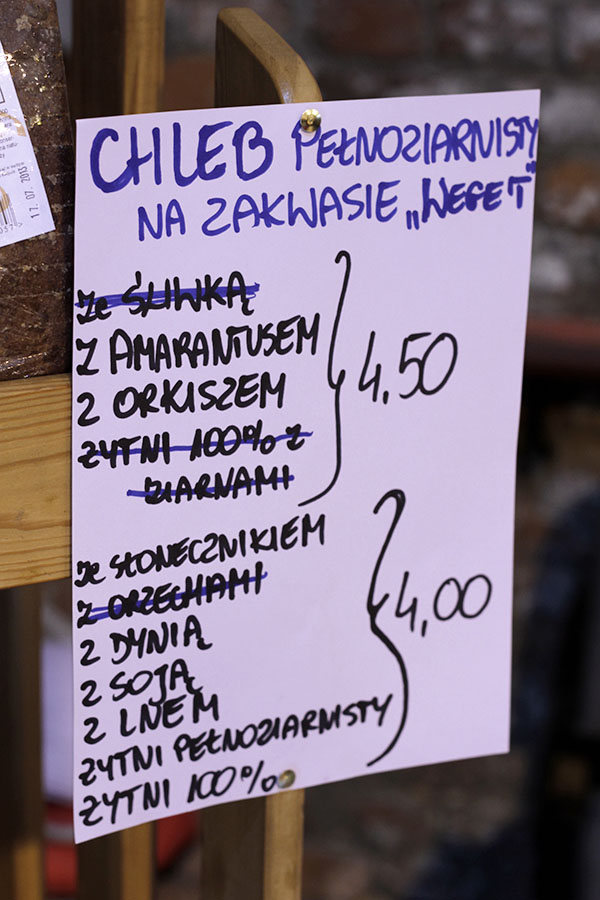 CHLEB PEŁNOZIARNISTY
NA ZAKWASIE „WEGET"
Ze ŚLIWKĄ
Z AMARANTUSEM
Z ORKISZEM
ŻYTNI 100% Z
ZIARNAMI
4,50
Ze SŁONECZNIKIEM
Z ORZECHAMI
Z DYNIĄ
Z SOJĄ
Z LNEM
ŻYTNI PEŁNOZIARNISTY
ŻYTNI 100%
4,00
17. 07. 2013